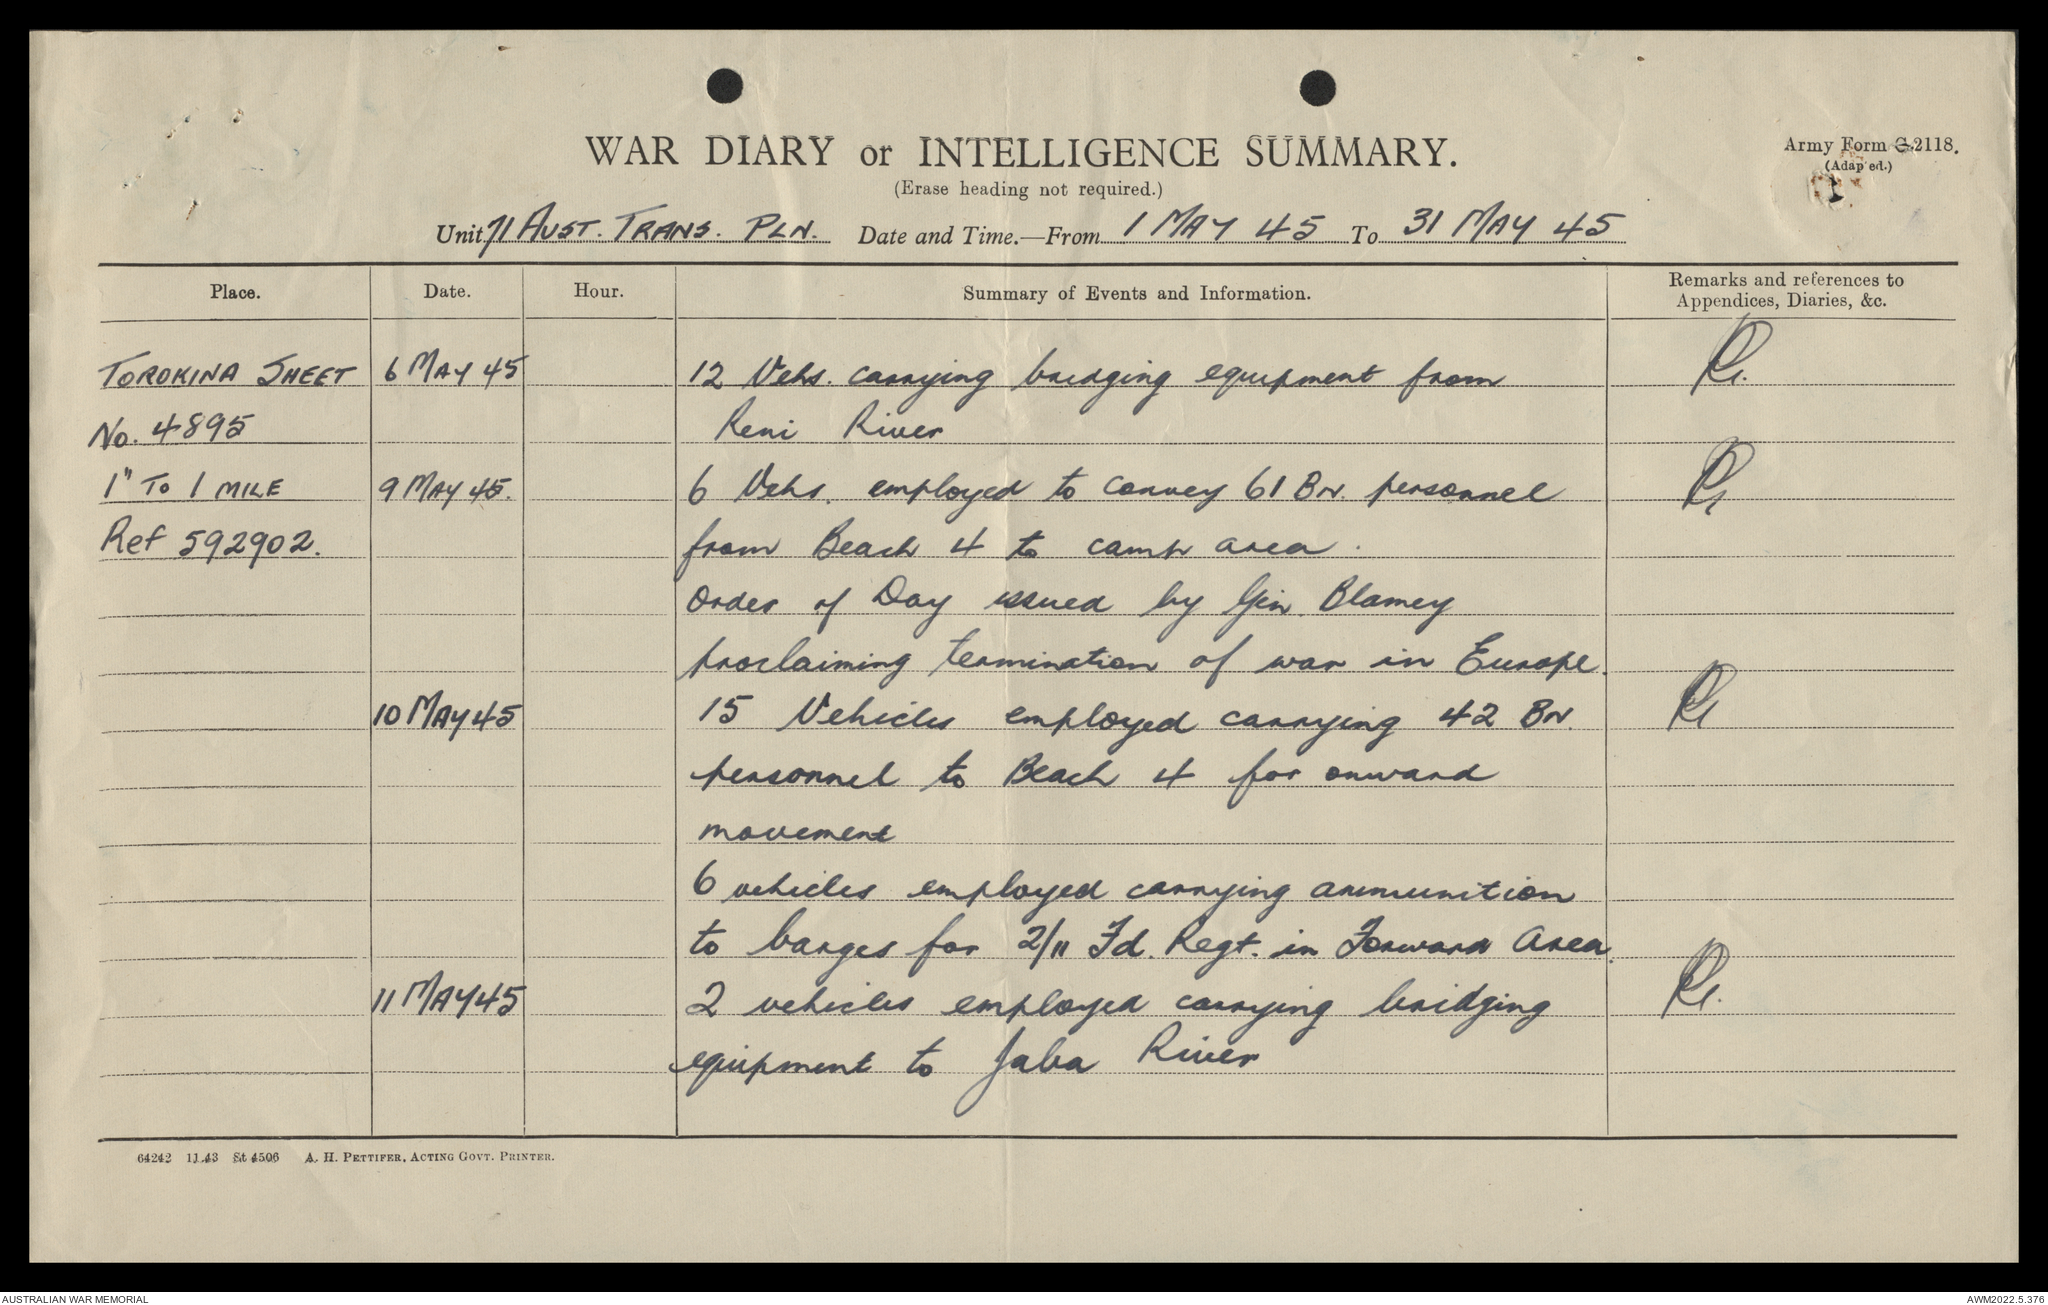 WAR DIARY or INTELLIGENCE SUMMARY.
(Erase heading not required.)
Army Form C 2118.
(Adap ed.)
1
Unit 71 AUST. TRANS. PLN. Date and Time.—From 1 MAY 45 To 31 MAY 45
Place. Date. Hour. Summary of Events and Information. Remarks and references to
Appendices, Diaries, &c.
TOROKINA SHEET 6 MAY 45 12 Vehs. carrying bridging equipment from
No. 4895 Reni River
1" TO 1 MILE 9 MAY 45. 6 Vehs. employed to convey 61 BN. personnel
Ref 592902. from Beach 4 to camp area.
Order of Day issued by Gen. Blamey
proclaiming termination of war in Europe.
10 MAY 45 15 Vehicles employed carrying 42 BN.
personnel to Beach 4 for onward
movement
6 vehicles employed carrying ammunition
to barges for 2/11 Fd. Regt. in Forward Area.
11 MAY 45 2 vehicles employed carrying bridging
equipment to Jaba River
64242 11.43 St 4506 A. H. PETTIFER, ACTING GOVT. PRINTER.
AUSTRALIAN WAR MEMORIAL AWM2022.5.376